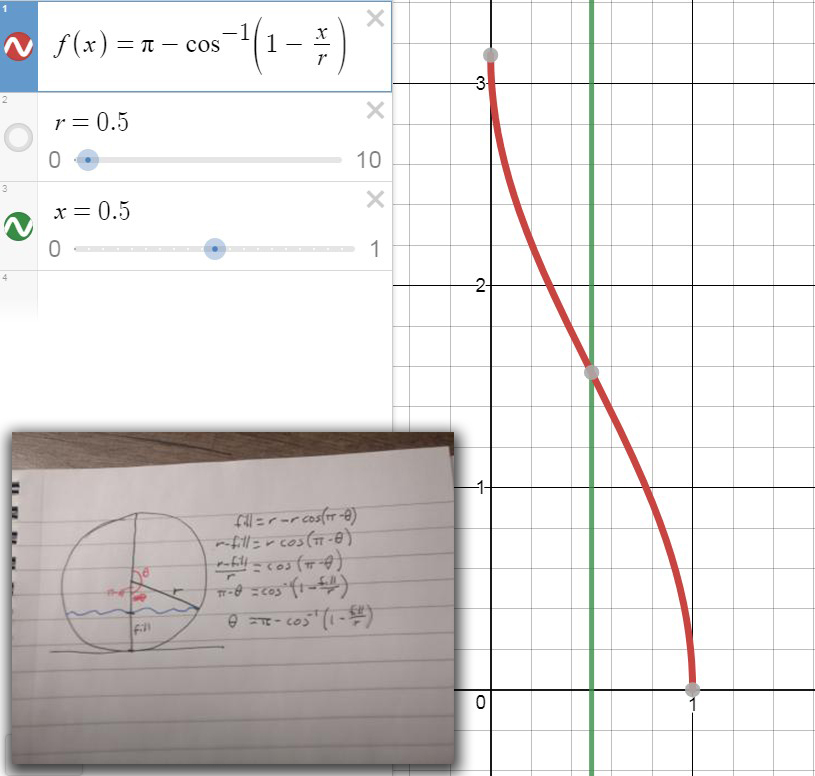 1
f(x) = π − cos⁻¹(1 − x/r)
2
r = 0.5
0 10
3
x = 0.5
0 1
4
3
2
1
0 1
fill = r − r cos(π − θ)
r − fill = r cos(π − θ)
(r − fill)/r = cos(π − θ)
π − θ = cos⁻¹(1 − fill/r)
θ = π − cos⁻¹(1 − fill/r)
θ
r
fill